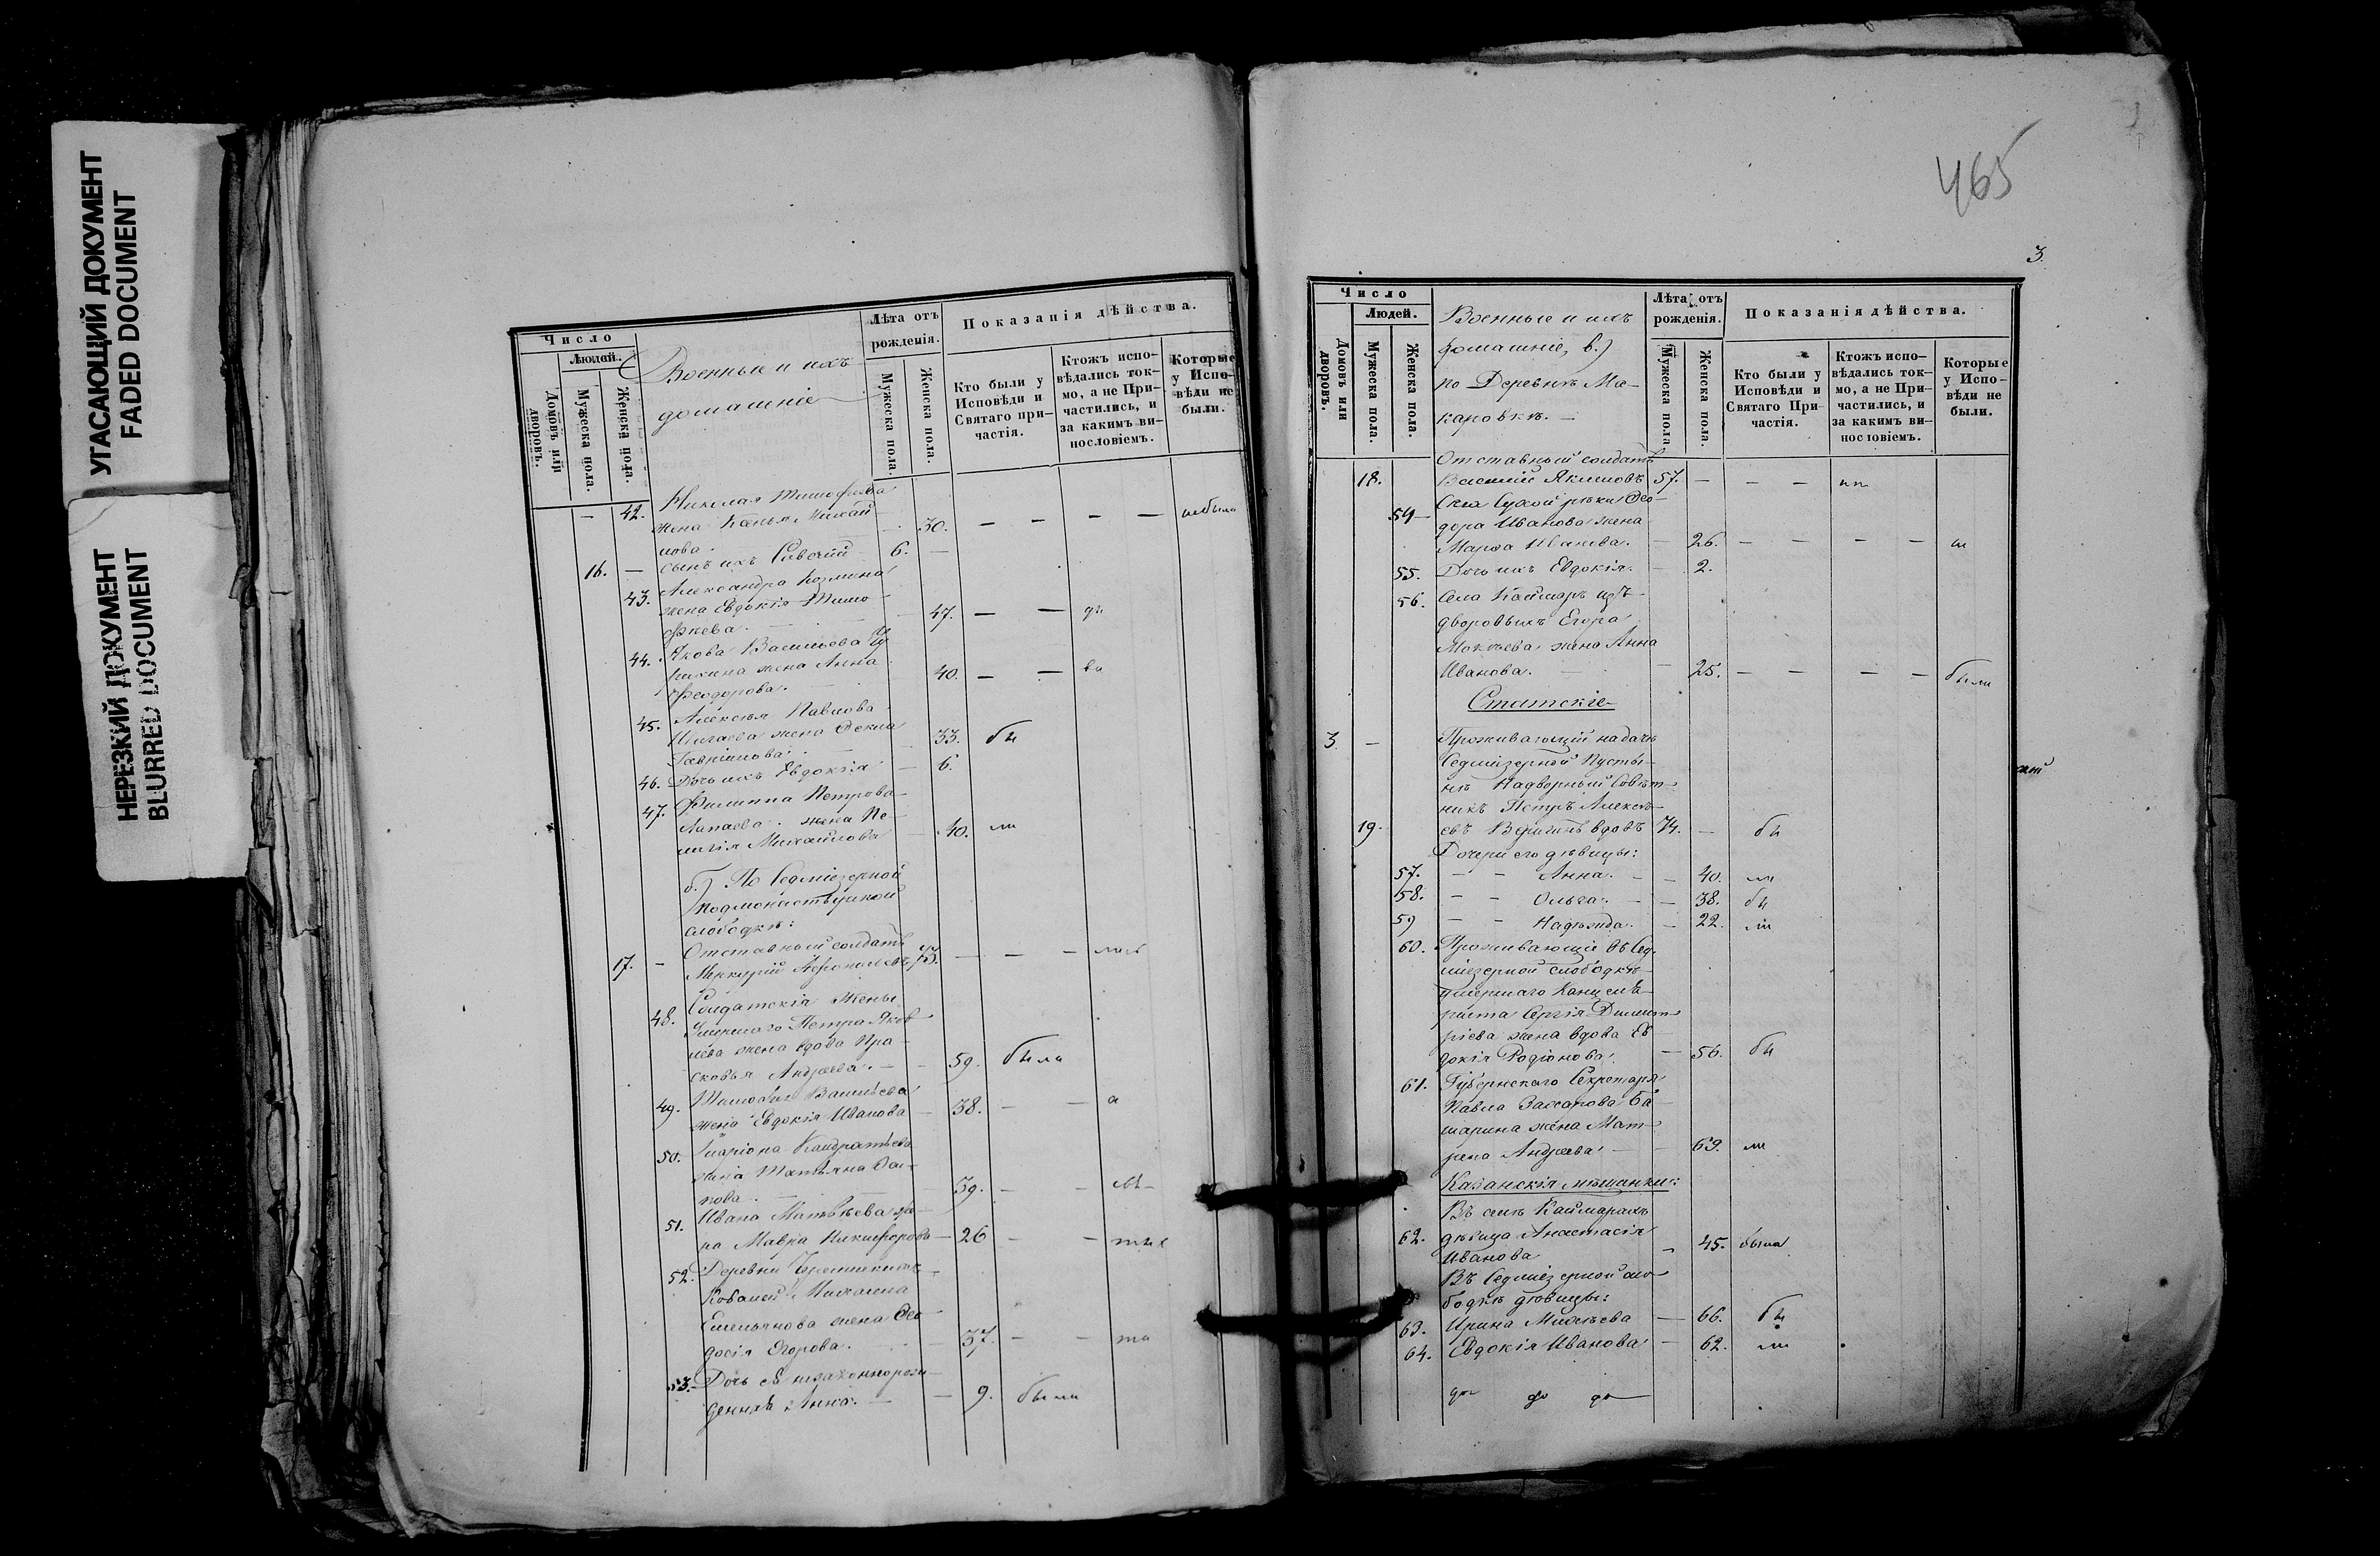 УГАСАЮЩИЙ ДОКУМЕНТ
FADED DOCUMENT
НЕРЕЗКИЙ ДОКУМЕНТ
BLURRED DOCUMENT
Число
Людей.
Домовъ или дворовъ.
Мужеска пола.
Женска пола.
Военные и ихъ
домашніе
Лѣта отъ
рожденія.
Мужеска пола.
Женска пола.
Показанія дѣйства.
Кто были у
Исповѣди и
Святаго при-
частія.
Ктожъ испо-
вѣдались ток-
мо, а не При-
частились, и
за какимъ ви-
нословіемъ.
Которые
у Испо-
вѣди не
были.
— 42. Николая Тимофѣева
жена Ксенья Михай
лова. 30. — — — —
16. — сынъ ихъ 6. —
43. Александра Козмина
жена Евдокія Тимо-
фѣева. 47. — —
44. Якова Васильева
жена Анна
Ѳеодорова. 40. — —
45. Алексѣя Павлова
жена Ѳекла
Гаврилова. 33. бы
46. Дочь ихъ Евдокія — 6.
47. Филиппа Петрова
Лапаева жена Пе-
лагія Михайлова — 40. ли
б.) По Седміезерной
подмонастырской
слободкѣ:
17. — Отставный солдатъ
Меркурій 73. — — —
48. Солдатскія жены
Умершаго Петра Яков
лева жена вдова Пра-
сковья Андреева. — 59. была
49. Тимофея Васильева
жена Евдокія Иванова — 38. — —
50. Иларіона Кандратьева
жена Татьяна
39. — —
51. Ивана Матвѣева же-
на Мавра Никифорова — 26 — —
52. Деревни
Ковалей Михаила
Емельянова жена Ѳео-
досія Егорова. 37. — —
53. Дочь ея незаконнорож-
денная Анна. — 9. были
465
3.
Число
Людей.
Домовъ или дворовъ.
Мужеска пола.
Женска пола.
Военные и ихъ
домашніе, в.)
по Деревнѣ Ма-
каровкѣ. —
Лѣта отъ
рожденія.
Мужеска пола
Женска пола.
Показанія дѣйства.
Кто были у
Исповѣди и
Святаго При-
частія.
Ктожъ испо-
вѣдались ток-
мо, а не При-
частились, и
за какимъ ви-
нословіемъ.
Которые
у Испо-
вѣди не
были.
Отставный солдатъ
18. Василій Якимовъ 57. — — —
54 Села Сухой рѣки Ѳео-
дора Иванова жена
Марѳа Иванова. — 26. — — — —
55. Дочь ихъ Евдокія. — 2.
56. Села Каймаръ изъ
дворовыхъ Егора
Мокѣева жена Анна
Иванова. — 25. — — — — были
Статскіе
3 — Проживающій на дачѣ
Седміезерной Пусты-
ни Надворный Совѣт-
никъ Петръ Алексѣ-
19. евъ вдовъ 74. — бы
Дочери его дѣвицы:
57. — — Анна. — — 40. ли
58. — — Ольга. — — 38. бы
59 — — Надежда. — 22. ли
60. Проживающіе въ Сед-
міезерной слободкѣ
умершаго Канцеля-
риста Сергія Димит-
ріева жена вдова Ев-
докія Родіонова. — 56. бы
61. Губернскаго Секретаря
Павла Захарова Ба-
шарина жена Мат-
рена Андреева. — 69. ли
Казанскія мѣщанки:
Въ селѣ Каймарахъ
62. дѣвица Анастасія
Иванова — 45. была
Въ Седміезерной сло-
бодкѣ дѣвицы:
63. Ирина Михѣева — 66. бы
64. Евдокія Иванова — 62. ли